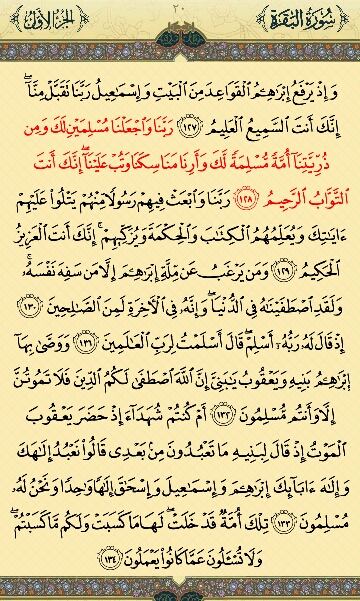 سُورَةُ الْبَقَرَةِ
٢٠
الجُزءُ الأوَّلُ
وَإِذْ يَرْفَعُ إِبْرَاهِـۧمُ الْقَوَاعِدَ مِنَ الْبَيْتِ وَإِسْمَاعِيلُ رَبَّنَا تَقَبَّلْ مِنَّآۖ
إِنَّكَ أَنتَ السَّمِيعُ الْعَلِيمُ ﴿١٢٧﴾ رَبَّنَا وَاجْعَلْنَا مُسْلِمَيْنِ لَكَ وَمِن
ذُرِّيَّتِنَآ أُمَّةً مُّسْلِمَةً لَّكَ وَأَرِنَا مَنَاسِكَنَا وَتُبْ عَلَيْنَآۖ إِنَّكَ أَنتَ
التَّوَّابُ الرَّحِيمُ ﴿١٢٨﴾ رَبَّنَا وَابْعَثْ فِيهِمْ رَسُولًا مِّنْهُمْ يَتْلُوا۟ عَلَيْهِمْ
ءَايَاتِكَ وَيُعَلِّمُهُمُ الْكِتَابَ وَالْحِكْمَةَ وَيُزَكِّيهِمْۚ إِنَّكَ أَنتَ الْعَزِيزُ
الْحَكِيمُ ﴿١٢٩﴾ وَمَن يَرْغَبُ عَن مِّلَّةِ إِبْرَاهِـۧمَ إِلَّا مَن سَفِهَ نَفْسَهُۥۚ
وَلَقَدِ اصْطَفَيْنَاهُ فِي الدُّنْيَاۖ وَإِنَّهُۥ فِي الْـَٔاخِرَةِ لَمِنَ الصَّالِحِينَ ﴿١٣٠﴾
إِذْ قَالَ لَهُۥ رَبُّهُۥٓ أَسْلِمْۖ قَالَ أَسْلَمْتُ لِرَبِّ الْعَالَمِينَ ﴿١٣١﴾ وَوَصَّىٰ بِهَآ
إِبْرَاهِـۧمُ بَنِيهِ وَيَعْقُوبُ يَابَنِيَّ إِنَّ اللَّهَ اصْطَفَىٰ لَكُمُ الدِّينَ فَلَا تَمُوتُنَّ
إِلَّا وَأَنتُم مُّسْلِمُونَ ﴿١٣٢﴾ أَمْ كُنتُمْ شُهَدَآءَ إِذْ حَضَرَ يَعْقُوبَ
الْمَوْتُ إِذْ قَالَ لِبَنِيهِ مَا تَعْبُدُونَ مِنۢ بَعْدِي قَالُوا۟ نَعْبُدُ إِلَاهَكَ
وَإِلَاهَ ءَابَآئِكَ إِبْرَاهِـۧمَ وَإِسْمَاعِيلَ وَإِسْحَاقَ إِلَاهًا وَاحِدًا وَنَحْنُ لَهُۥ
مُسْلِمُونَ ﴿١٣٣﴾ تِلْكَ أُمَّةٌ قَدْ خَلَتْۖ لَهَا مَا كَسَبَتْ وَلَكُم مَّا كَسَبْتُمْۖ
وَلَا تُسْـَٔلُونَ عَمَّا كَانُوا۟ يَعْمَلُونَ ﴿١٣٤﴾